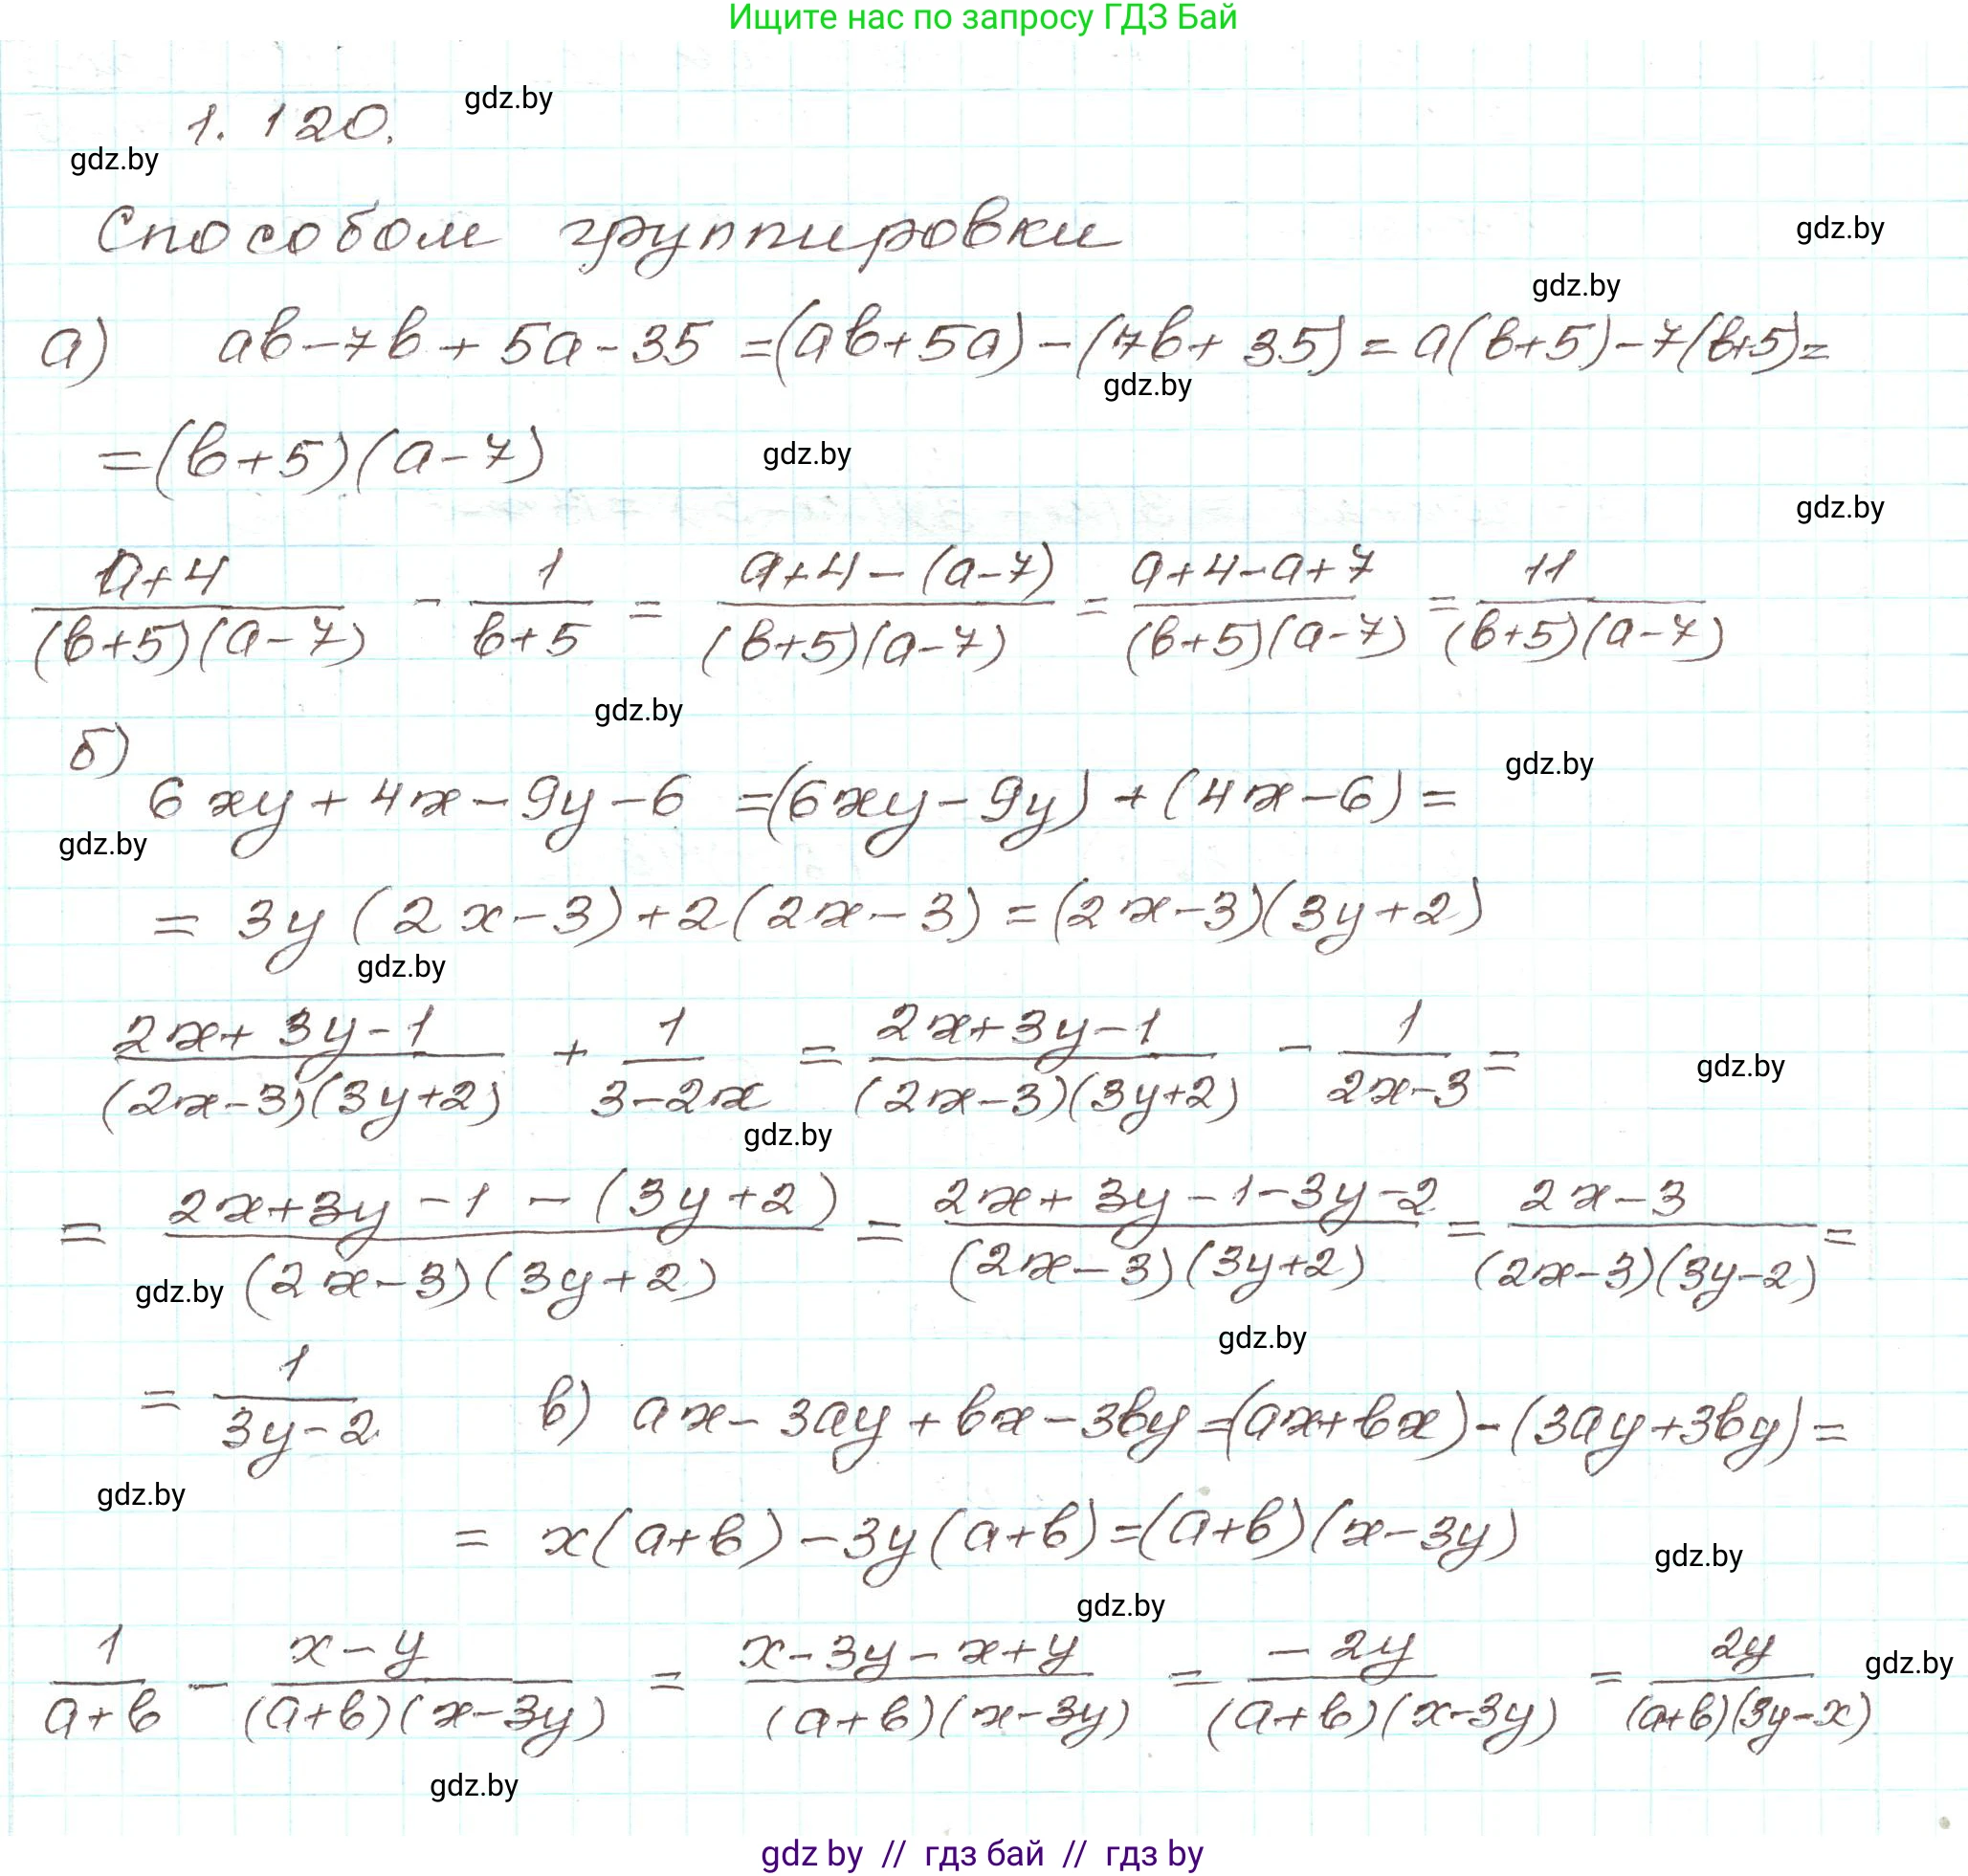 Ищите нас по запросу ГДЗ Бай
gdz.by
1. 120.
gdz.by
Способом группировки
gdz.by
gdz.by
а) ab-7b+5a-35=(ab+5a)-(7b+35)=a(b+5)-7(b+5)=
gdz.by
=(b+5)(a-7)
gdz.by
gdz.by
(a+4)/((b+5)(a-7)) - 1/(b+5) = (a+4-(a-7))/((b+5)(a-7)) = (a+4-a+7)/((b+5)(a-7)) = 11/((b+5)(a-7))
gdz.by
б)
gdz.by
6xy+4x-9y-6=(6xy-9y)+(4x-6)=
gdz.by
=3y(2x-3)+2(2x-3)=(2x-3)(3y+2)
gdz.by
(2x+3y-1)/((2x-3)(3y+2)) + 1/(3-2x) = (2x+3y-1)/((2x-3)(3y+2)) - 1/(2x-3) =
gdz.by
gdz.by
= (2x+3y-1-(3y+2))/((2x-3)(3y+2)) = (2x+3y-1-3y-2)/((2x-3)(3y+2)) = (2x-3)/((2x-3)(3y-2)) =
gdz.by
gdz.by
= 1/(3y-2) в) ax-3ay+bx-3by=(ax+bx)-(3ay+3by)=
gdz.by
=x(a+b)-3y(a+b)=(a+b)(x-3y)
gdz.by
gdz.by
1/(a+b) - (x-y)/((a+b)(x-3y)) = (x-3y-x+y)/((a+b)(x-3y)) = (-2y)/((a+b)(x-3y)) = 2y/((a+b)(3y-x))
gdz.by
gdz.by
gdz by // гдз бай // гдз by